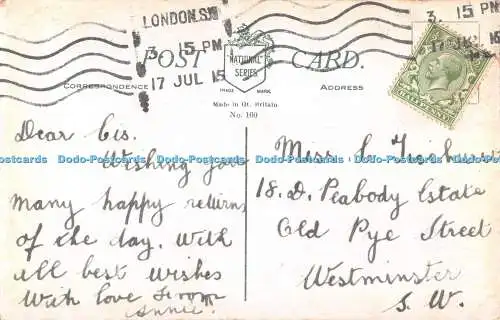 LONDON.S.W
3. 15 PM
17 JUL 15
3. 15 PM
POST CARD.
"NATIONAL" SERIES
TRADE MARK
CORRESPONDENCE
ADDRESS
Made in Gt. Britain
No. 160
HALFPENNY
Dear Cis.
Wishing you
many happy returns
of the day. With
all best wishes
With love from
Annie.
Miss
18. D. Peabody Estate
Old Pye Street
Westminster
S. W.
Dodo-Postcards Dodo-Postcards Dodo-Postcards Dodo-Postcards Dodo-Postcards